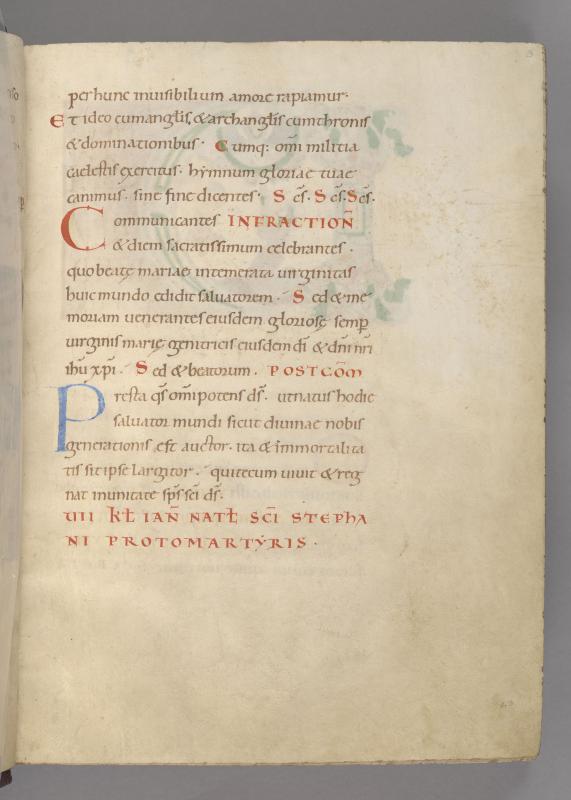 per hunc inuisibilium amore rapiamur·
Et ideo cum angl̄is, & archangl̄is cum thronis
& dominationibus· Cumq: om̄i militia
caelestis exercitus· hẏmnum gloriae tuae
canimus· sine fine dicentes· Sc̄s· Sc̄s· Sc̄s·
Communicantes INFRACTION̄
& diem sacratissimum celebrantes·
quo beatę mariae intemerata uirginitas
huic mundo edidit saluatorem· Sed & me
moriam uenerantes eiusdem gloriosę semp̄
uirginis marię genitricis eiusdem dī & dn̄i nr̄i
ih̄u xp̄i· Sed & beatorum· POSTCOM̄
Presta qs̄ om̄ipotens ds̄· ut natus hodie
saluator mundi sicut diuinae nobis
generationis est auctor· ita & immortalita
tis sit ipse largitor· qui tecum uiuit & reg
nat in unitate sp̄s sc̄i ds̄·
UII kƚ IAN̄ NATƚ SC̄I STEPHA
NI PROTOMARTẎRIS·